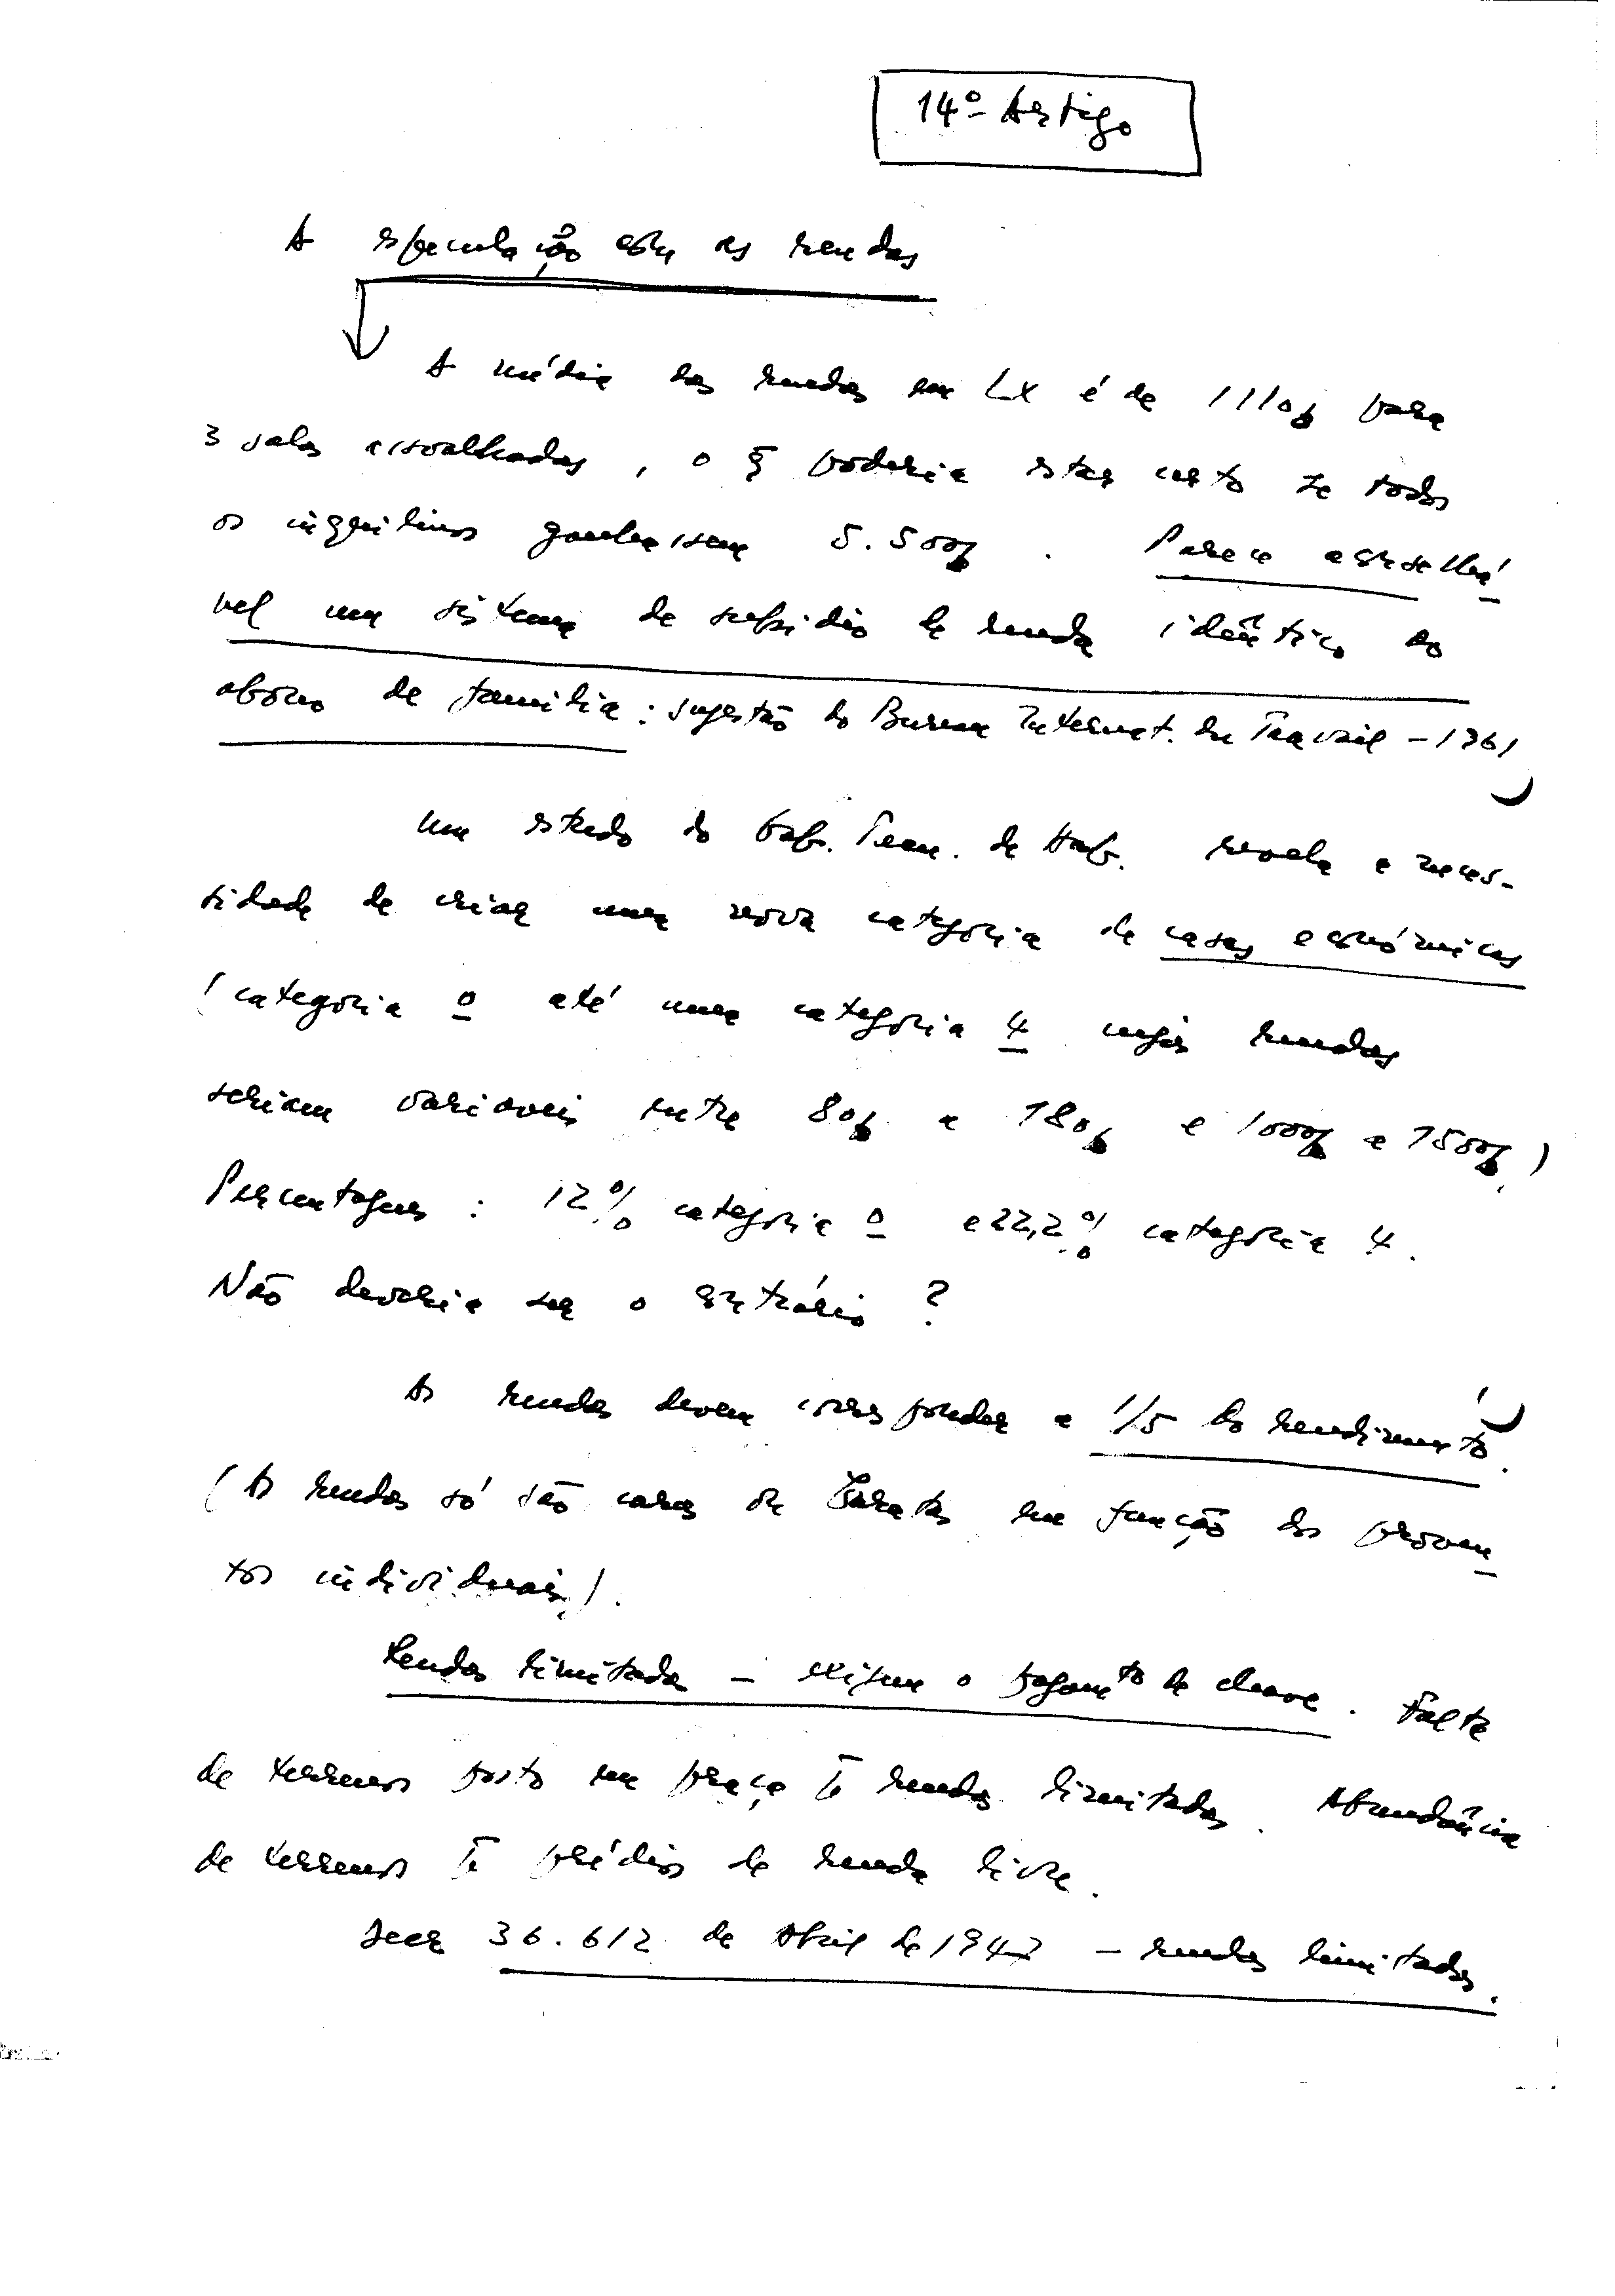 14º Artigo
A especulação com as rendas
A média das rendas em Lx é de 1110$ para
3 salas assoalhadas, o q̄ poderia estar certo se todos
os inquilinos ganhassem 5.500$. Parece aconselhá
vel um sistema de subsídio de renda idêntico ao
abono de família: sugestão do Bureau Internat. du Travail - 1961
Um estudo do Gab. Tecn. de Hab. revela a neces-
sidade de criar uma nova categoria de casas económicas
(categoria 0 até uma categoria 4 cujas rendas
seriam variáveis entre 80$ a 180$ e 1000$ a 1500$)
Percentagens: 12% categoria 0 e 22,2% categoria 4.
Não deveria ser o contrário?
As rendas devem corresponder a 1/5 do rendimento.
(As rendas só são caras ou baratas em função dos proven
tos individuais).
Rendas limitadas - exigem o pagamto de chave. Falta
de terrenos posto em praça rendas limitadas. Abundância
de terrenos prédios de renda livre.
36.612 de Abril de 1947 - rendas limitadas.